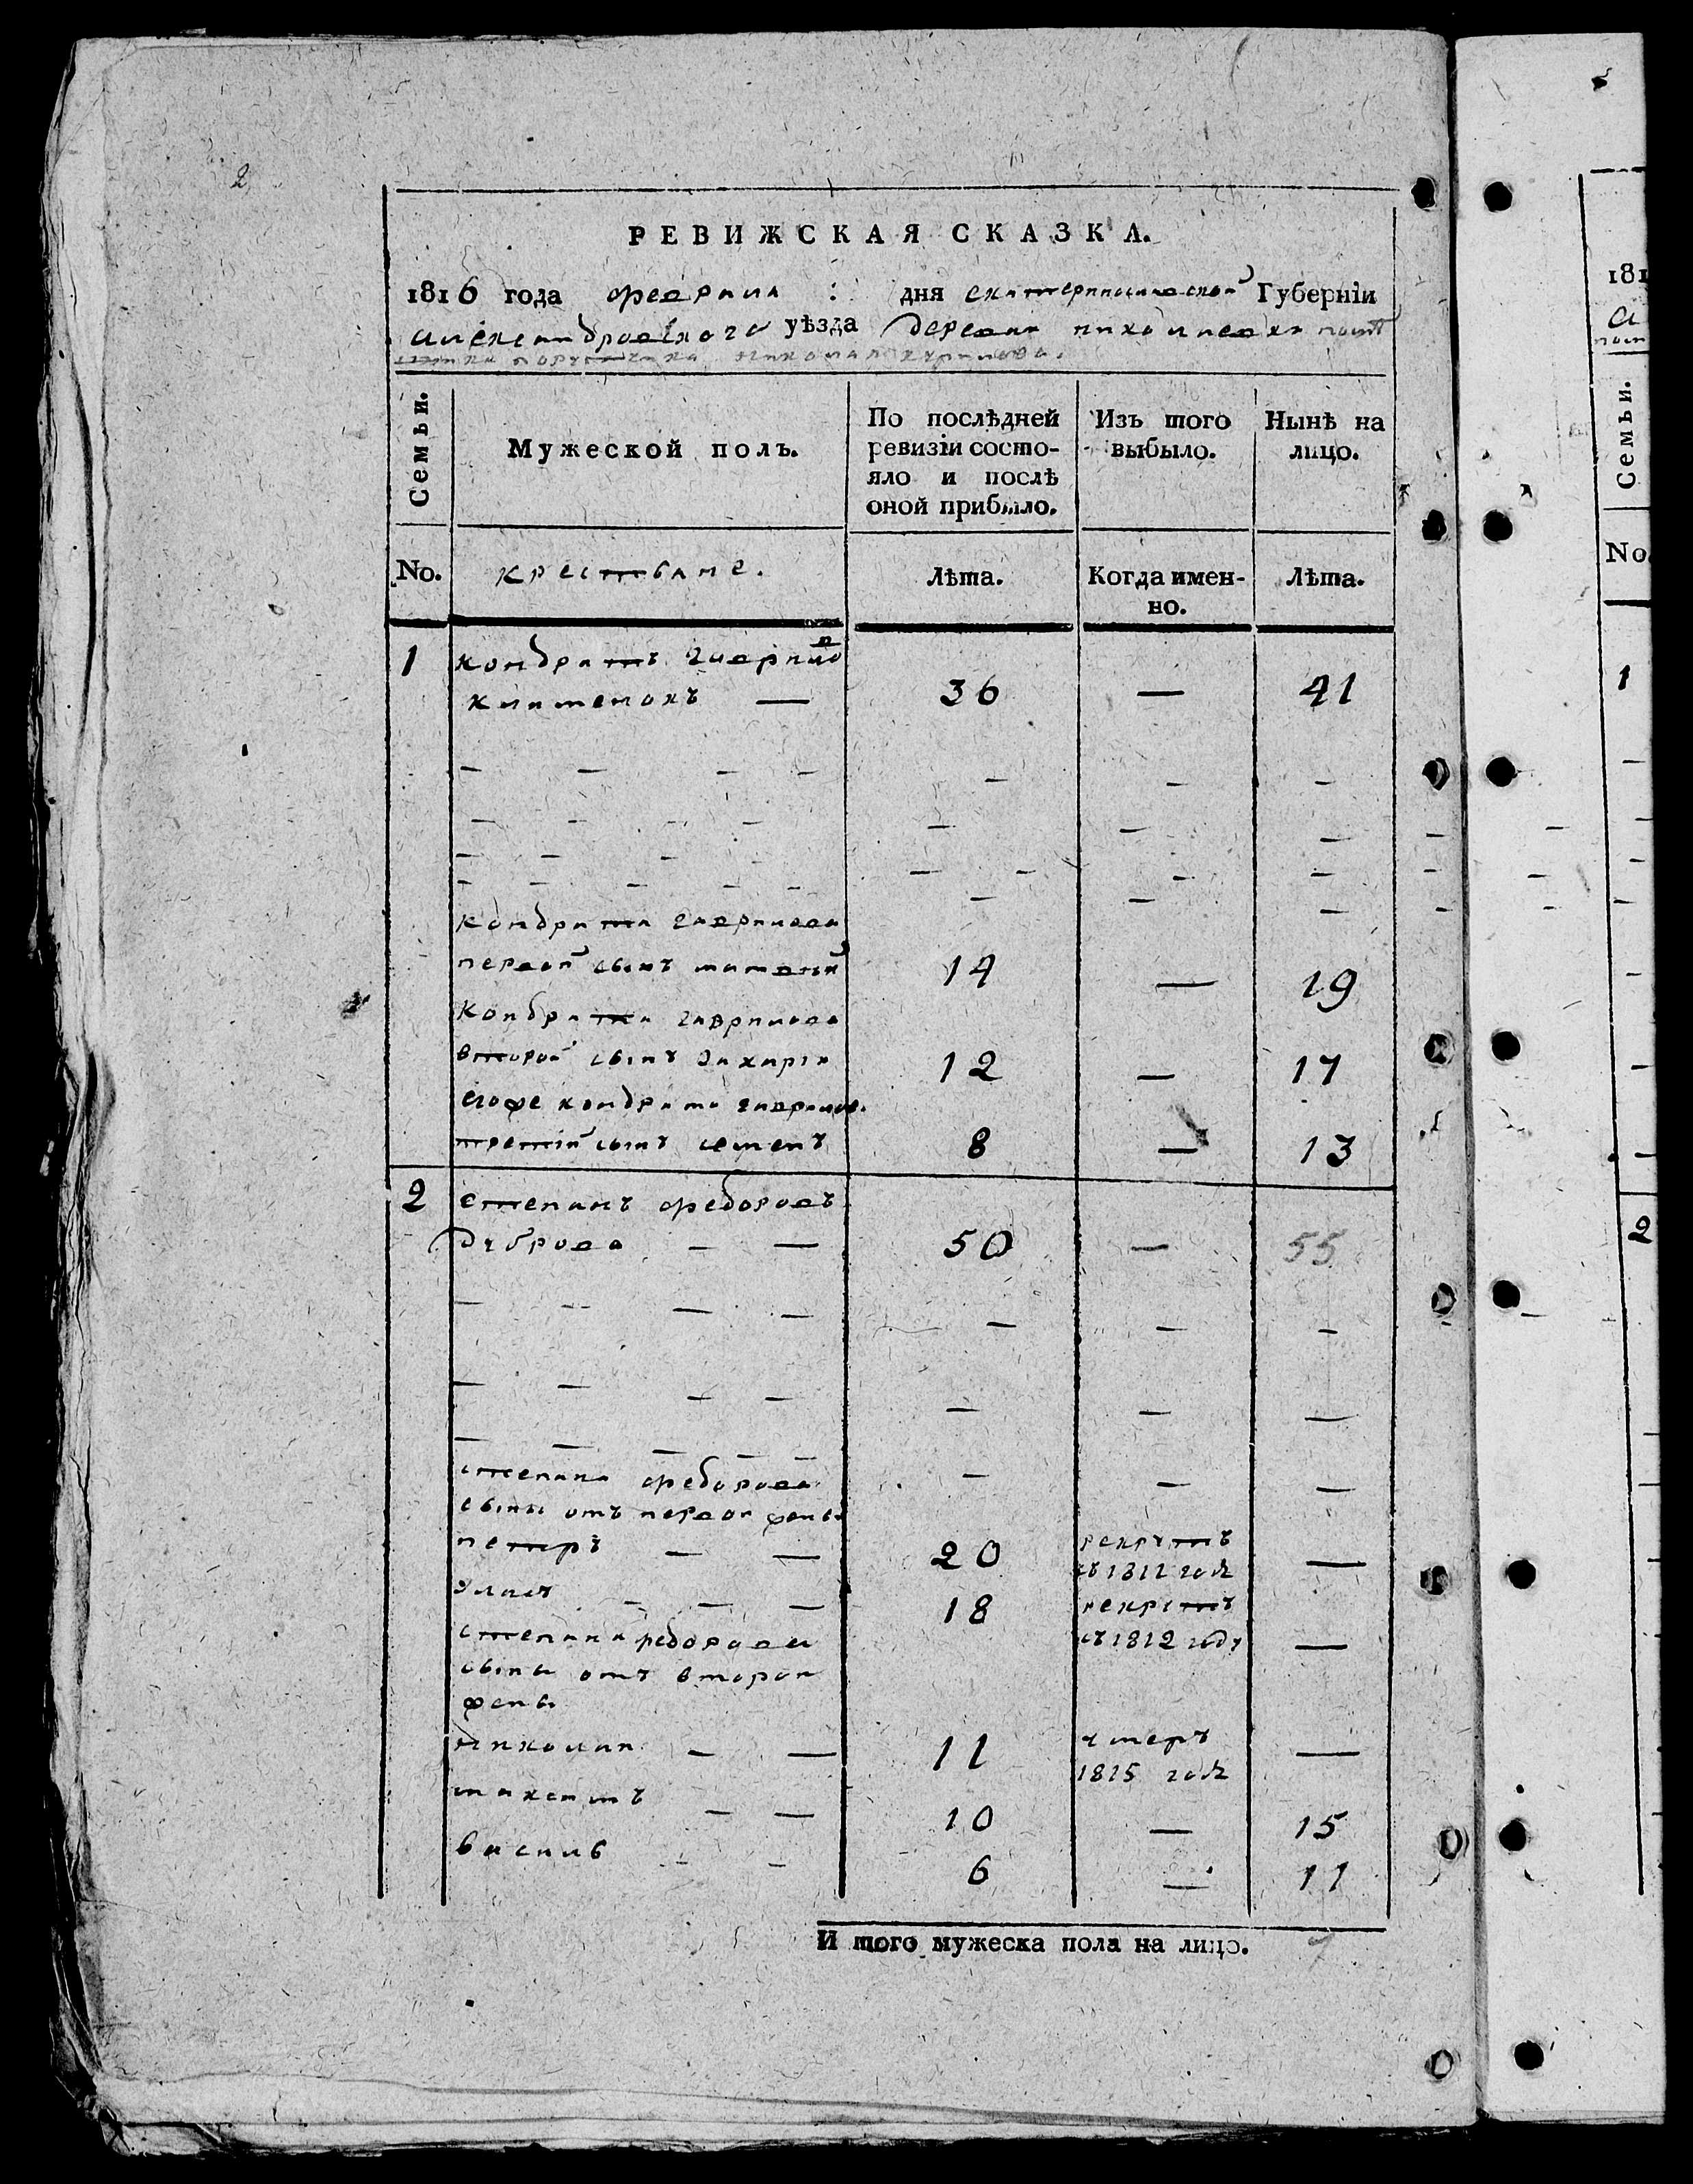 2
РЕВИЖСКАЯ СКАЗКА.
1816 года февраля : дня екатеринославской Губерніи
александровского уѣзда деревни николаевки пом
порутчика николая курилова.
Семьи.
Мужеской полъ.
По послѣдней ревизіи состояло и послѣ оной прибыло.
Изъ того выбыло.
Нынѣ на лицо.
No.
крестьяне.
Лѣта.
Когда именно.
Лѣта.
1 кондратъ гаврилов
— 36 — 41
кондрата гаврилова
первой сынъ матвей 14 — 19
кондрата гаврилова
второй сынъ захарія 12 — 17
егоже кондрата гаврилов.
третій сынъ семенъ 8 — 13
2 степанъ федоровъ
дуброва — — 50 — 55
степана федорова
сыны отъ первой жены
петръ — — 20 рекрутъ
въ 1812 годѣ —
власъ — — — 18 рекрутъ
въ 1812 году —
степана федорова
сыны отъ второй
жены
николай — — 11 умеръ
1815 годѣ —
максимъ — — 10 — 15
василь - - 6 — 11
И того мужеска пола на лицо.
181
Семьи.
No.
1
2